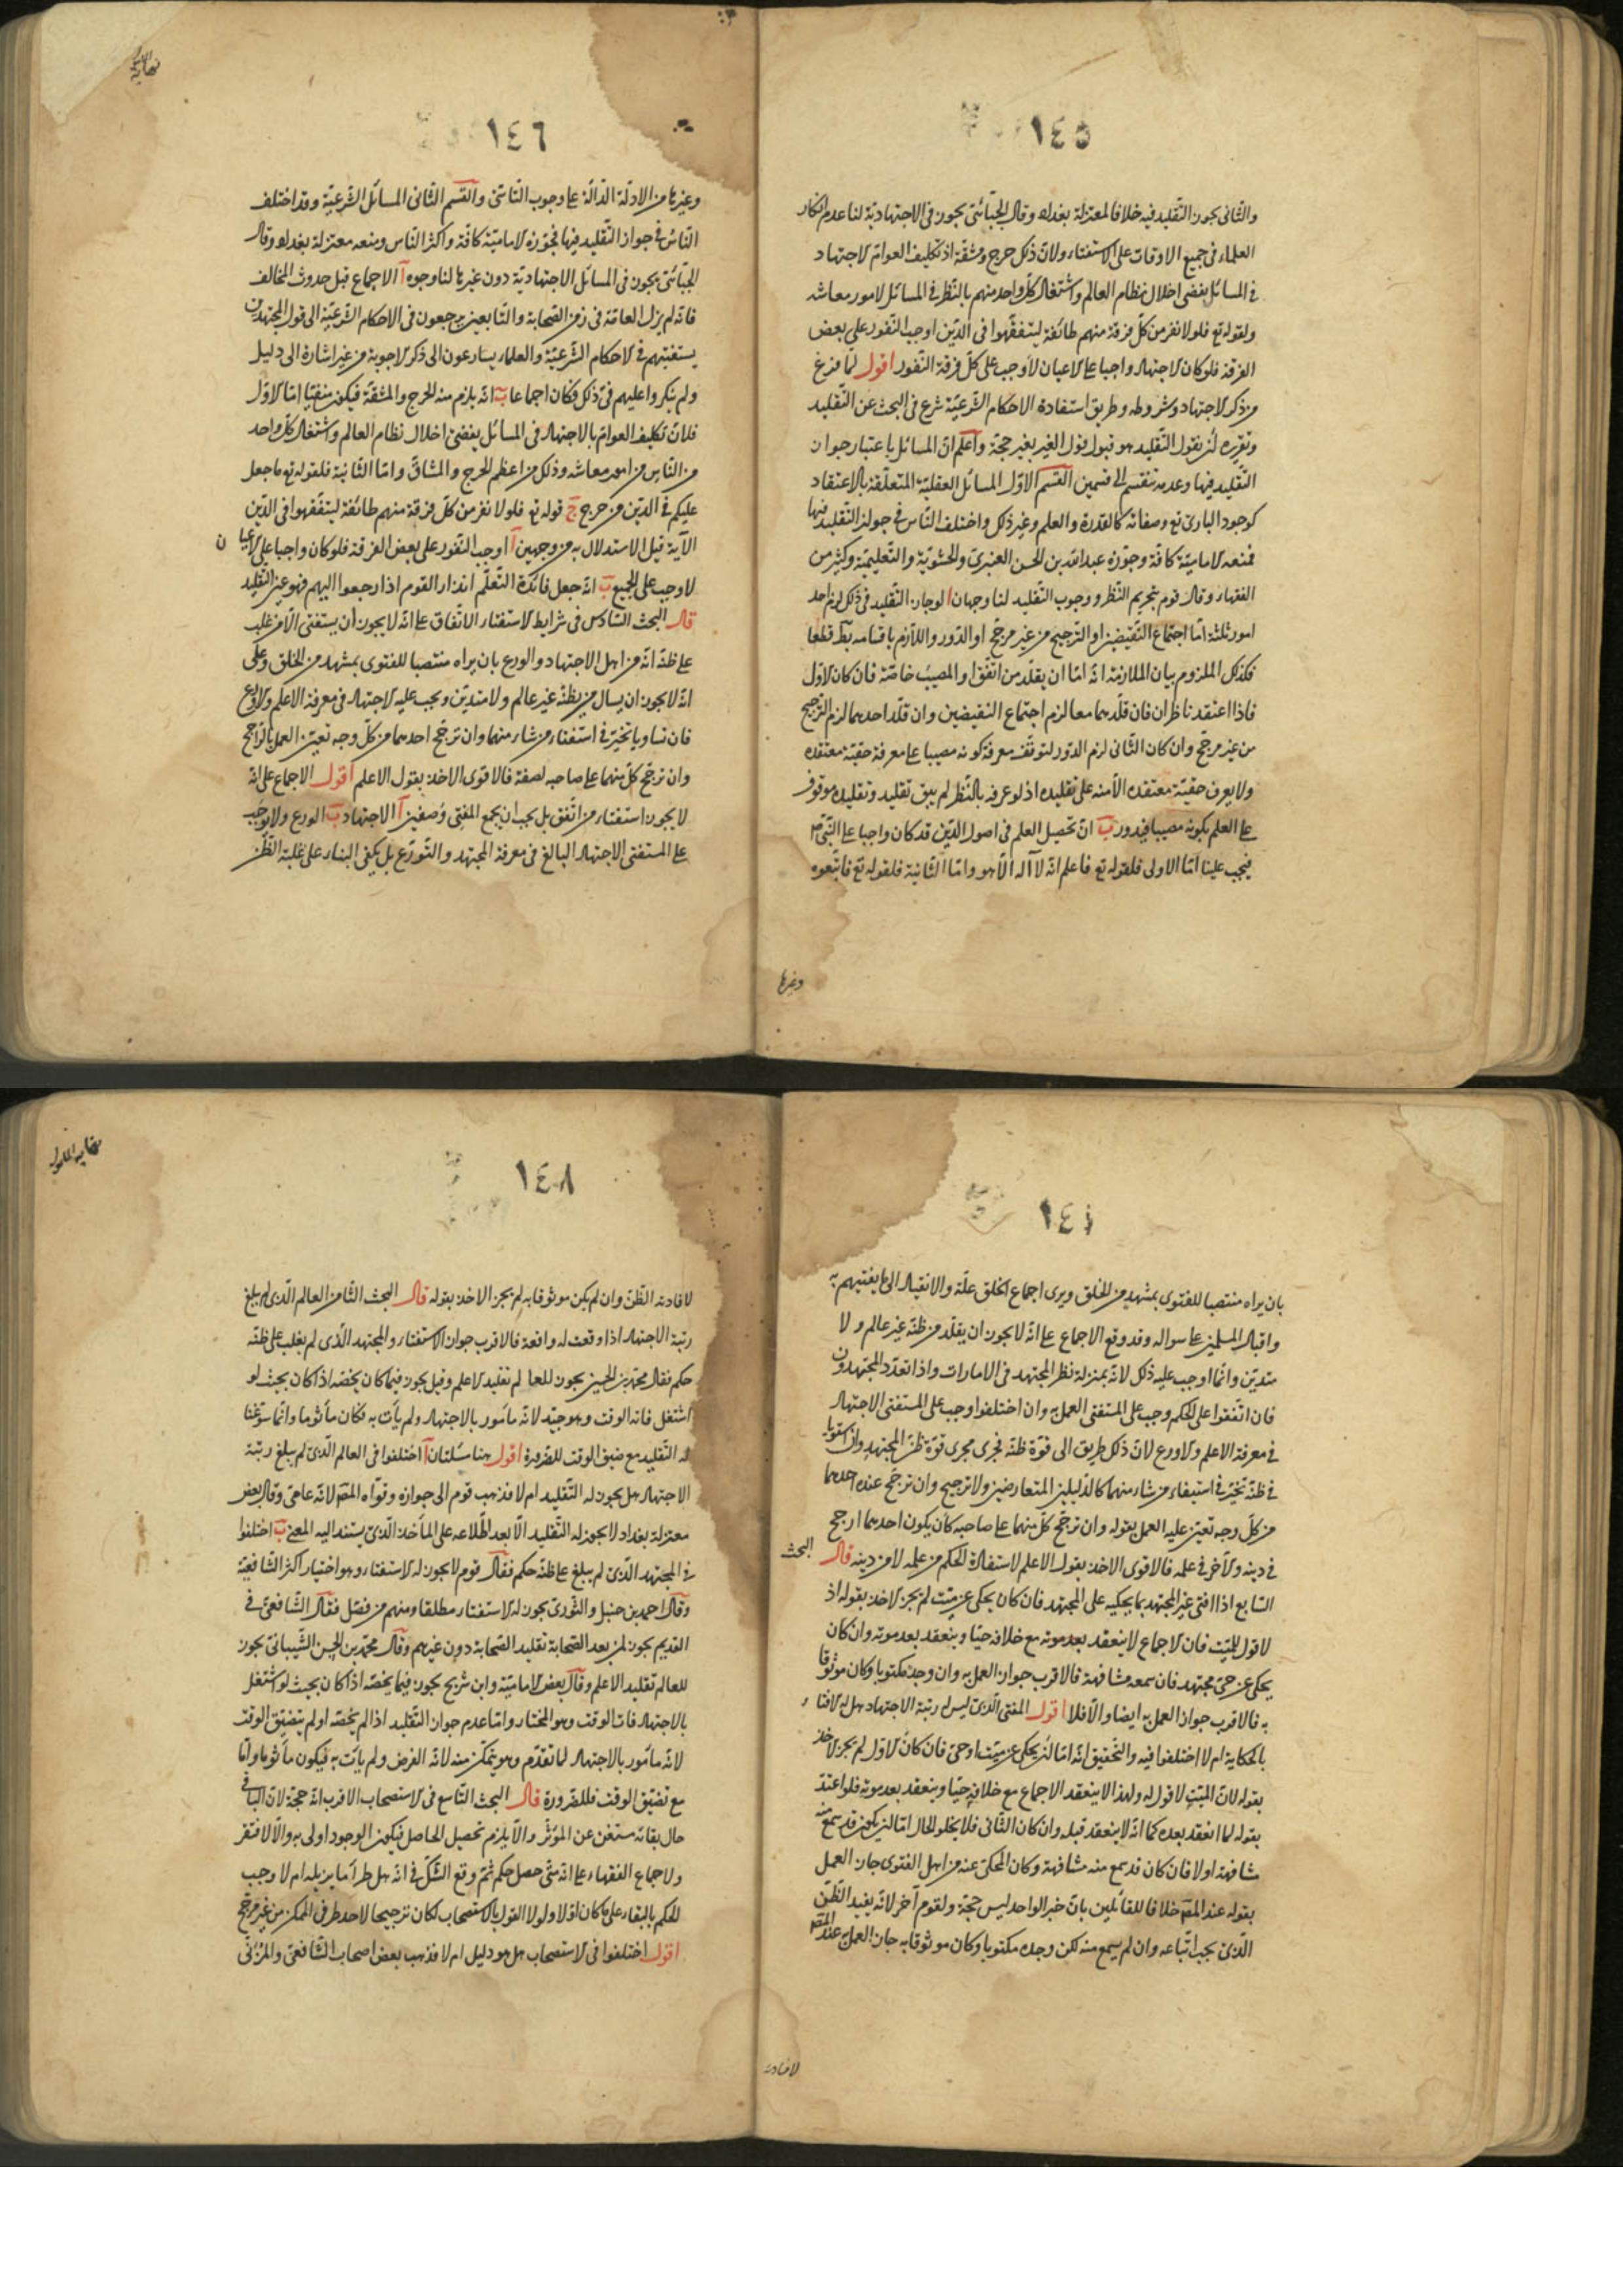 ١٤٥
والثانى يجوز التقليد فيه خلافا لمعتزلة بغداد وقال الجبّائى يجوز فى الاجتهادية لنا عدم انكار
العلماء فى جميع الاوقات على الاستفتاء ولان ذلك حرج ومشقّة اذ تكليف العوام الاجتهاد
فى المسائل يفضى اخلال نظام العالم واشتغال كل واحد منهم بالنظر فى المسائل لامور معاشه
ولقوله تع فلولا نفر من كلّ فرقة منهم طائفة ليتفقّهوا فى الدّين اوجب النّفور على بعض
الفرقة فلو كان الاجتهاد واجبا على الاعيان لأوجب على كلّ فرقة النّفور اقول لمّا فرغ
من ذكر الاجتهاد وشروطه وطريق استفادة الاحكام الشّرعيّة شرع فى البحث عن التّقليد
وتقريره ان يقول التّقليد هو قبول قول الغير بغير حجّة واعلم انّ المسائل باعتبار جواز
التّقليد فيها وعدمه تنقسم الى قسمين القسم الاوّل المسائل العقليّة المتعلّقة بالاعتقاد
كوجود البارئ تع وصفاته كالقدرة والعلم وغير ذلك واختلف النّاس فى جواز التقليد فيها
فمنعه الاماميّة كافّة وجوّزه عبدالله بن الحسن العنبرىّ والحشويّة والتّعليميّة وكثير من
الفقهاء وقال قوم بتحريم النّظر ووجوب التّقليد لنا وجهان ا لو جاز التّقليد فى ذلك لزم احد
امور ثلثة امّا اجتماع النّقيضين او التّرجيح من غير مرجّح او الدّور واللّازم باقسامه بط قطعا
فكذلك الملزوم بيان الملازمة انّه امّا ان يقلّد من اتّفق او المصيب خاصّة فان كان الاوّل
فاذا اعتقد ناظران فان قلّدهما معا لزم اجتماع النقيضين وان قلّد احدهما لزم التّرجيح
من غير مرجّح وان كان الثّانى لزم الدّور لتوقّف معرفة كونه مصيبا على معرفة حقيّة معتقده
ولا يعرف حقيّة معتقده الّا منه على تقليده اذ لو عرفه بالنّظر لم يبق تقليد وتقليده موقوف
على العلم بكونه مصيبا فيدور ب انّ تحصيل العلم فى اصول الدّين قد كان واجبا على النّبىّ ص
فيجب علينا امّا الاولى فلقوله تع فاعلم انّه لا اله الّا هو وامّا الثّانية فلقوله تع فاتّبعوه
وغيرها
١٤٦
وغيرها من الادلّة الدّالّة على وجوب التّاسّى والقسم الثّانى المسائل الشّرعيّة وقد اختلف
النّاس فى جواز التّقليد فيها فجوّزه الاماميّة كافّة واكثر النّاس ومنعه معتزلة بغداد وقال
الجبّائى يجوز فى المسائل الاجتهاديّة دون غيرها لنا وجوه ا الاجماع قبل حدوث المخالف
فانّه لم يزل العامّة فى زمن الصّحابة والتّابعين يرجعون فى الاحكام الشّرعيّة الى قول المجتهدين
يستفتيهم فى الاحكام الشّرعيّة والعلماء يسارعون الى ذكر الاجوبة من غير اشارة الى دليل
ولم ينكروا عليهم فى ذلك فكان اجماعا ب انّه يلزم منه الحرج والمشقّة فيكون منفيّا امّا الاوّل
فلانّ تكليف العوام بالاجتهاد فى المسائل يفضى اخلال نظام العالم واشتغال كلّ واحد
من النّاس من امور معاشه وذلك من اعظم الحرج والمشاقّ وامّا الثّانية فلقوله تع ما جعل
عليكم فى الدّين من حرج ج قوله تع فلولا نفر من كلّ فرقة منهم طائفة ليتفقّهوا فى الدّين
الآية قيل الاستدلال به من وجهين ا اوجب النّفور على بعض الفرقة فلو كان واجبا على الاعيان
لاوجب على الجميع ب انّه جعل فائدة التّعلّم انذار القوم اذا رجعوا اليهم فهو عين التّقليد
قال البحث السّادس فى شرايط الاستفتاء الاتّفاق على انّه لا يجوز أن يستفتى الّا من غلب
على ظنّه انّه من اهل الاجتهاد والورع بان يراه منتصبا للفتوى بمشهد من الخلق وعلى
انّه لا يجوز ان يسال من يظنّه غير عالم ولا متديّن ويجب عليه الاجتهاد فى معرفة الاعلم والاورع
فان تساويا تخيّر فى استفتاء من شاء منهما وان ترجّح احدهما من كلّ وجه تعيّن العمل بالرّاجح
وان ترجّح كلّ منهما على صاحبه لصفة فالاقوى الاخذ بقول الاعلم اقول الاجماع على انّه
لا يجوز استفتاء من اتّفق بل يجب ان يجمع المفتى وصفين ا الاجتهاد ب الورع ولا يجب
على المستفتى الاجتهاد البالغ فى معرفة المجتهد والتّورّع بل يكفى البناء على غلبة الظّنّ
بان يراه منتصبا للفتوى بمشهد من الخلق ويرى اجماع الخلق عليه والانقياد الى ما يفتيهم به
واقبال المسلمين على سواله وقد وقع الاجماع على انّه لا يجوز ان يقلّد من ظنّه غير عالم ولا
متديّن وانّما اوجب عليه ذلك لانّه بمنزلة نظر المجتهد فى الامارات واذا تعدّد المجتهدون
فان اتّفقوا على الحكم وجب على المستفتى العمل به وان اختلفوا وجب على المستفتى الاجتهاد
فى معرفة الاعلم والاورع لانّ ذلك طريق الى قوّة ظنّه فجرى مجرى قوّة ظنّ المجتهد وان استويا
فى ظنّه تخيّر فى استيفاء من شاء منهما كالدّليلين المتعارضين ولا ترجيح وان ترجّح عنده احدهما
من كلّ وجه تعيّن عليه العمل بقوله وان ترجّح كلّ منهما على صاحبه كان يكون احدهما ارجح
فى دينه والآخر فى علمه فالاقوى الاخذ بقول الاعلم لاستفادة الحكم من علمه لا من دينه قال البحث
السّابع اذا افتى غير المجتهد بما يحكيه على المجتهد فان كان يحكى عن ميّت لم يجز الاخذ بقوله اذ
لا قول للميّت فان الاجماع لا ينعقد بعد موته مع خلافه حيّا وينعقد بعد موته وان كان
يحكى عن حىّ مجتهد فان سمعه مشافهة فالاقرب جواز العمل به وان وجده مكتوبا وكان موثوقا
به فالاقرب جواز العمل به ايضا والّا فلا اقول المفتى الّذى ليس له رتبة الاجتهاد هل له الافتاء
بالحكاية ام لا اختلفوا فيه والتّحقيق انّه امّا ان يحكى عن ميّت او حىّ فان كان الاوّل لم يجز الاخذ
بقوله لانّ الميّت لا قول له ولهذا لا ينعقد الاجماع مع خلافه حيّا وينعقد بعد موته فلو اعتدّ
بقوله لما انعقد بعده كما انّه لا ينعقد قبله وان كان الثّانى فلا يخلو الحال امّا ان يكون قد سمع منه
مشافهة او لا فان كان قد سمع منه مشافهة وكان المحكىّ عنه من اهل الفتوى جاز العمل
بقوله عند المص خلافا للقائلين بانّ خبر الواحد ليس حجّة ولقوم آخر لانّه يفيد الظّنّ
الّذى يجب اتّباعه وان لم يسمع منه لكن وجده مكتوبا وكان موثوقا به جاز العمل به عند المص
لافادته
١٤٨
لافادته الظّنّ وان لم يكن موثوقا به لم يجز الاخذ بقوله قال البحث الثّامن العالم الّذى لم يبلغ
رتبة الاجتهاد اذا وقعت له واقعة فالاقرب جواز الاستفتاء والمجتهد الّذى لم يغلب على ظنّه
حكم فقال محمّد بن الحسن يجوز للعالم تقليد الاعلم وقيل يجوز فيما كان يخصّه اذا كان بحيث لو
اشتغل فاته الوقت وهو جيّد لانّه مأمور بالاجتهاد ولم يأت به فكان مأثوما وانّما سوّغنا
له التّقليد مع ضيق الوقت للضّرورة اقول هنا مسئلتان ا اختلفوا فى العالم الّذى لم يبلغ رتبة
الاجتهاد هل يجوز له التّقليد ام لا فذهب قوم الى جوازه وقوّاه المص لانّه عامىّ وقال بعض
معتزلة بغداد لا يجوز له التّقليد الّا بعد اطّلاعه على المأخذ الّذى يستند اليه المفتى ب اختلفوا
فى المجتهد الّذى لم يبلغ على ظنّه حكم فقال قوم لا يجوز له الاستفتاء وهو اختيار اكثر الشّافعيّة
وقال احمد بن حنبل والثّورىّ يجوز له الاستفتاء مطلقا ومنهم من فصّل فقال الشّافعىّ فى
القديم يجوز لمن بعد الصّحابة تقليد الصّحابة دون غيرهم وقال محمّد بن الحسن الشّيبانىّ يجوز
للعالم تقليد الاعلم وقال بعض الاماميّة وابن شريح يجوز فيما يخصّه اذا كان بحيث لو اشتغل
بالاجتهاد فات الوقت وهو المختار وامّا عدم جواز التّقليد اذا لم يخصّه او لم يتضيّق الوقت
لانّه مأمور بالاجتهاد لما تقدّم وهو يتمكّن منه لانّه الفرض ولم يات به فيكون مأثوما وامّا
مع تضيّق الوقت فللضّرورة قال البحث التّاسع فى الاستصحاب الاقرب انّه حجّة لانّ الباقى
حال بقائه مستغن عن المؤثّر والّا يلزم تحصيل الحاصل فيكون الوجود اولى به والّا لافتقر
ولاجماع الفقهاء على انّه متى حصل حكم ثمّ وقع الشّكّ فى انّه هل طرأ ما يزيله ام لا وجب
الحكم بالبقاء على ما كان اوّلا ولولا القول بالاستصحاب لكان ترجيحا لاحد طرفى الممكن من غير مرجّح
اقول اختلفوا فى الاستصحاب هل هو دليل ام لا فذهب بعض اصحاب الشّافعىّ والمزنىّ